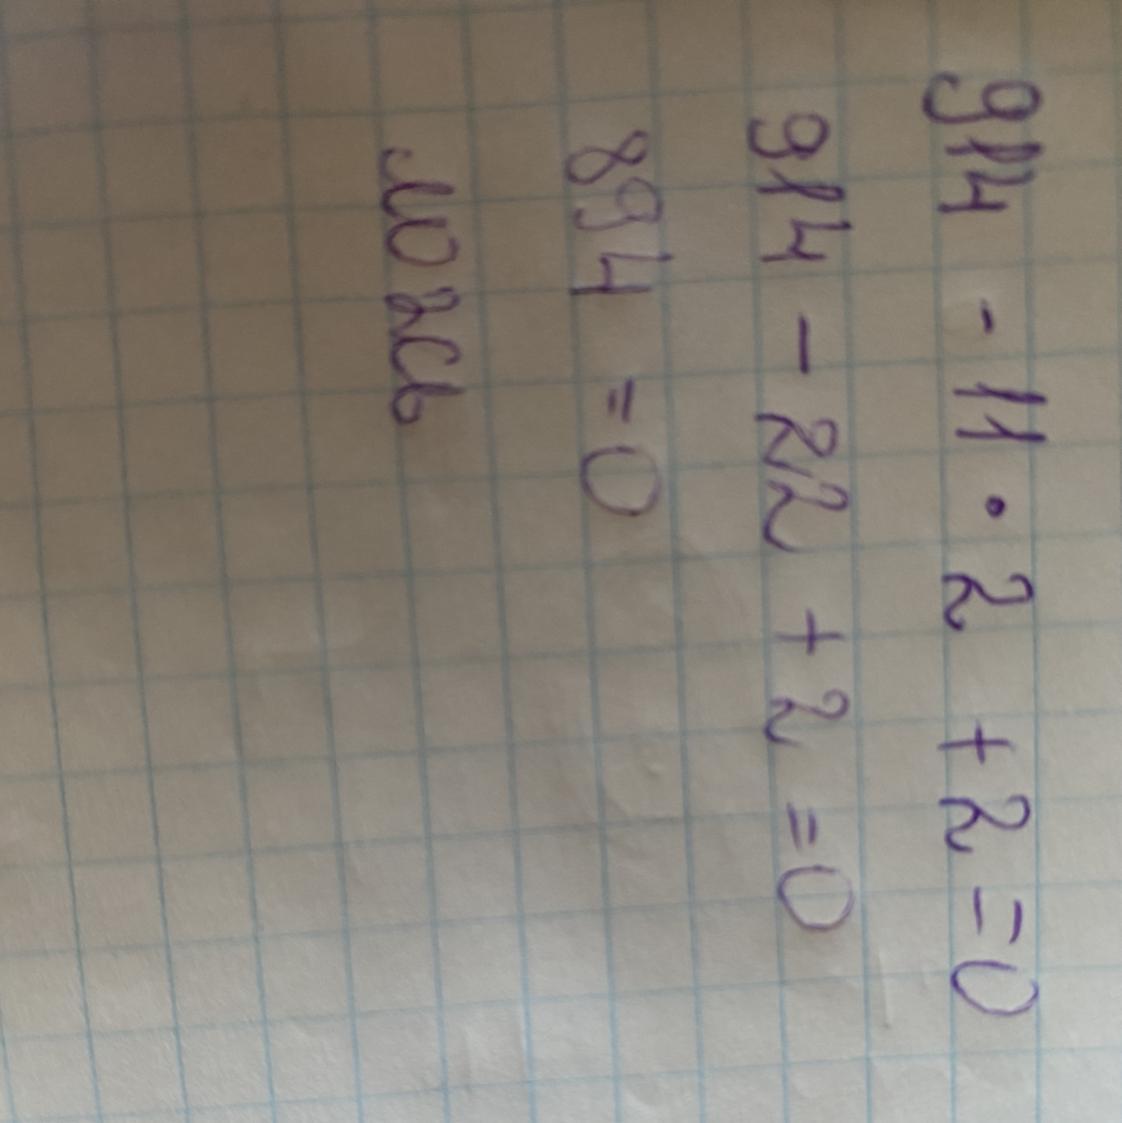 914 - 11 · 2 + 2 = 0
914 - 22 + 2 = 0
894 = 0
ложь